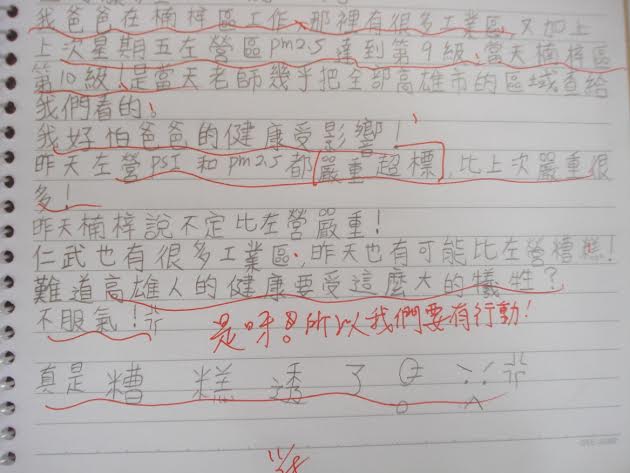 我爸爸在楠梓區工作、那裡有很多工業區,又加上
上次星期五左營區pm2.5達到第9級、當天楠梓區
第10級!是當天老師幾乎把全部高雄市的區域查給
我們看的、
我好怕爸爸的健康受影響!
昨天左營psI和pm2.5都嚴重超標,比上次嚴重很
多!
昨天楠梓說不定比左營嚴重!
仁武也有很多工業區,昨天也有可能比左營糟糕!
難道高雄人的健康要受這麼大的犧牲?
不服氣!
是呀!所以我們要有行動!
真是糟糕透了